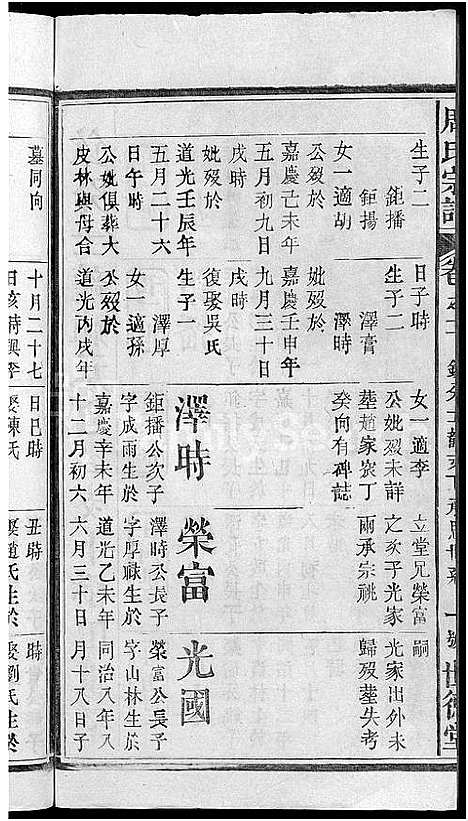 周氏宗譜
世德堂
生子二
鉅播
鉅揚
女一適胡
公歿於
嘉慶己未年
五月初九日
戌時
妣歿於
道光壬辰年
五月二十六
日午時
公妣俱葬大
皮林與母合
墓同向
日子時
生子二
澤膏
澤時
妣歿於
嘉慶壬申年
九月初九日
戌時
復娶吳氏
生子一
澤厚
女一適孫
公歿於
道光丙戌年
十月二十七
日亥時與李
女一適李
公妣歿未詳
葬趙家嶺丁
癸向有碑誌
澤時
鉅播公次子
字成雨生於
嘉慶辛未年
十二月初六
日巳時
娶陳氏
立堂兄榮富
之次子光家
兩承宗祧
榮富
澤時公長子
字厚祿生於
道光乙未年
六月三十日
丑時
娶趙氏生於
嗣
光家出外未
歸歿葬失考
光國
榮富公長子
字山林生於
同治八年八
月十八日子
時
娶劉氏生於